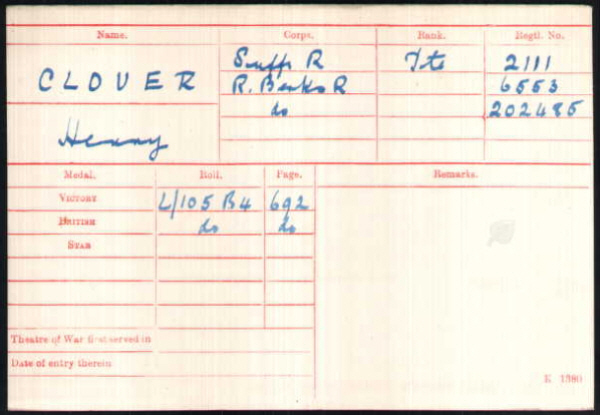 Name. Corps. Rank. Regtl. No.
CLOVER Suff. R Pte 2111
R. Berks R 6553
Henry do 202485
Medal. Roll. Page. Remarks.
VICTORY L/105 B4 692
BRITISH do do
STAR
Theatre of War first served in
Date of entry therein
K 1380